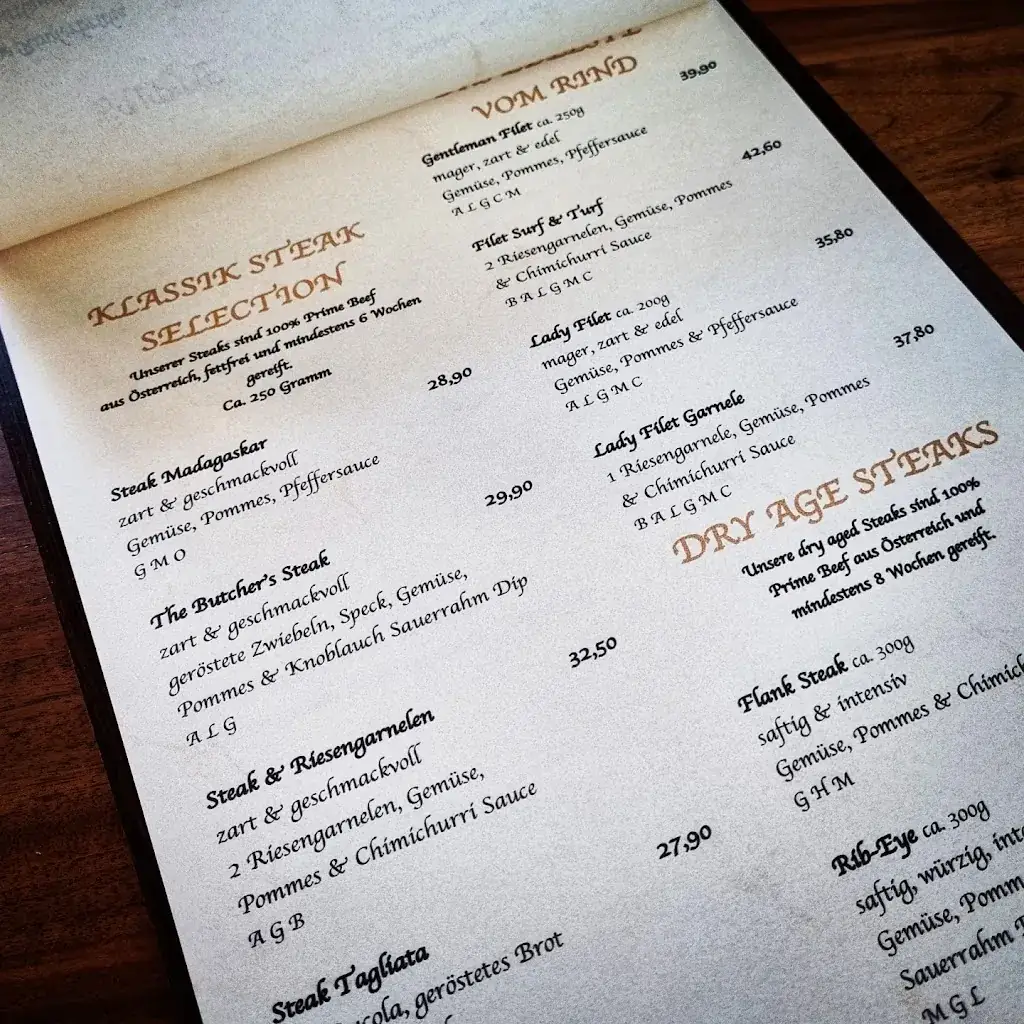 KLASSIK STEAK
SELECTION
Unserer Steaks sind 100% Prime Beef
aus Österreich, fettfrei und mindestens 6 Wochen
gereift.
Ca. 250 Gramm
Steak Madagaskar 28,90
zart & geschmackvoll
Gemüse, Pommes, Pfeffersauce
G M O
The Butcher's Steak 29,90
zart & geschmackvoll
geröstete Zwiebeln, Speck, Gemüse,
Pommes & Knoblauch Sauerrahm Dip
A L G
Steak & Riesengarnelen 32,50
zart & geschmackvoll
2 Riesengarnelen, Gemüse,
Pommes & Chimichurri Sauce
A G B
Steak Tagliata 27,90
geröstetes Brot
VOM RIND
Gentleman Filet ca. 250g 39,90
mager, zart & edel
Gemüse, Pommes, Pfeffersauce
A L G C M
Filet Surf & Turf 42,60
2 Riesengarnelen, Gemüse, Pommes
& Chimichurri Sauce
B A L G M C
Lady Filet ca. 200g 35,80
mager, zart & edel
Gemüse, Pommes & Pfeffersauce
A L G M C
Lady Filet Garnele 37,80
1 Riesengarnele, Gemüse, Pommes
& Chimichurri Sauce
B A L G M C
DRY AGE STEAKS
Unsere dry aged Steaks sind 100%
Prime Beef aus Österreich und
mindestens 8 Wochen gereift.
Flank Steak ca. 300g
saftig & intensiv
Gemüse, Pommes & Chimich
G H M
Rib-Eye ca. 300g
saftig, würzig, int
Gemüse, Pomm
Sauerrahm
M G L